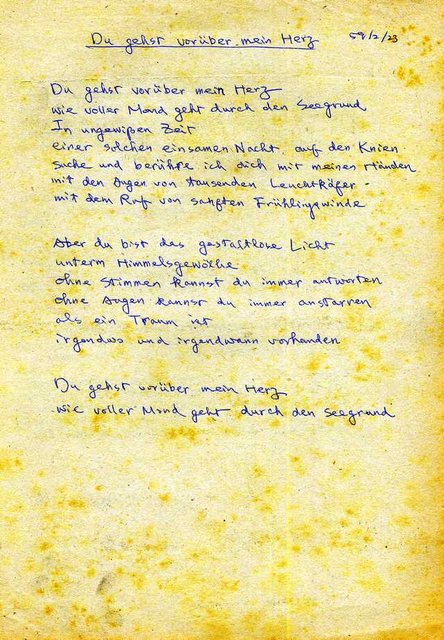 Du gehst vorüber mein Herz
59/2/23
Du gehst vorüber mein Herz
wie voller Mond geht durch den Seegrund
In ungewißen Zeit
einer solchen einsamen Nacht, auf den Knien
suche und berühre ich dich mit meinen Händen
mit den Augen von tausenden Leuchtkäfer
mit dem Ruf von sanften Frühlingswinde
Aber du bist das gestaltlose Licht
unterm Himmelsgewölbe
ohne Stimmen kannst du immer antworten
ohne Augen kannst du immer anstarren
als ein Traum ist
irgendwo und irgendwann vorhanden
Du gehst vorüber mein Herz
wie voller Mond geht durch den Seegrund